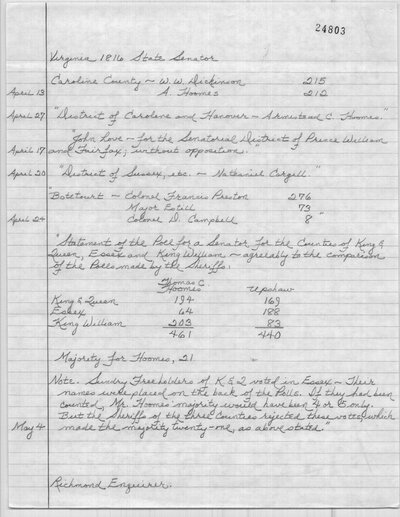 24803
Virginia 1816 State Senator
Caroline County ~ W. W. Dickinson 215
April 13 A. Hoomes 212
April 27 "District of Caroline and Hanover ~ Armistead C. Hoomes."
"John Love ~ for the Senatorial District of Prince William
April 17 and Fairfax, without opposition."
April 20 "District of Sussex, etc. ~ Nathaniel Cargill."
"Botetourt ~ Colonel Francis Preston 276
Major Estill 73
April 24 Colonel D. Campbell 8"
"Statement of the Poll for a Senator for the Counties of King &
Queen, Essex and King William ~ agreeably to the comparison
of the Polls made by the Sheriffs:
Thomas C.
Hoomes Upshaw
King & Queen 194 169
Essex 64 188
King William 203 83
461 440
Majority for Hoomes, 21
Note. Sundry Freeholders of K & Q voted in Essex ~ Their
names were placed on the back of the Polls. If they had been
counted, Mr. Hoomes' majority would have been 4 or 5 only.
But the Sheriffs of the three Counties rejected these votes, which
May 4 made the majority twenty-one, as above stated."
Richmond Enquirer.